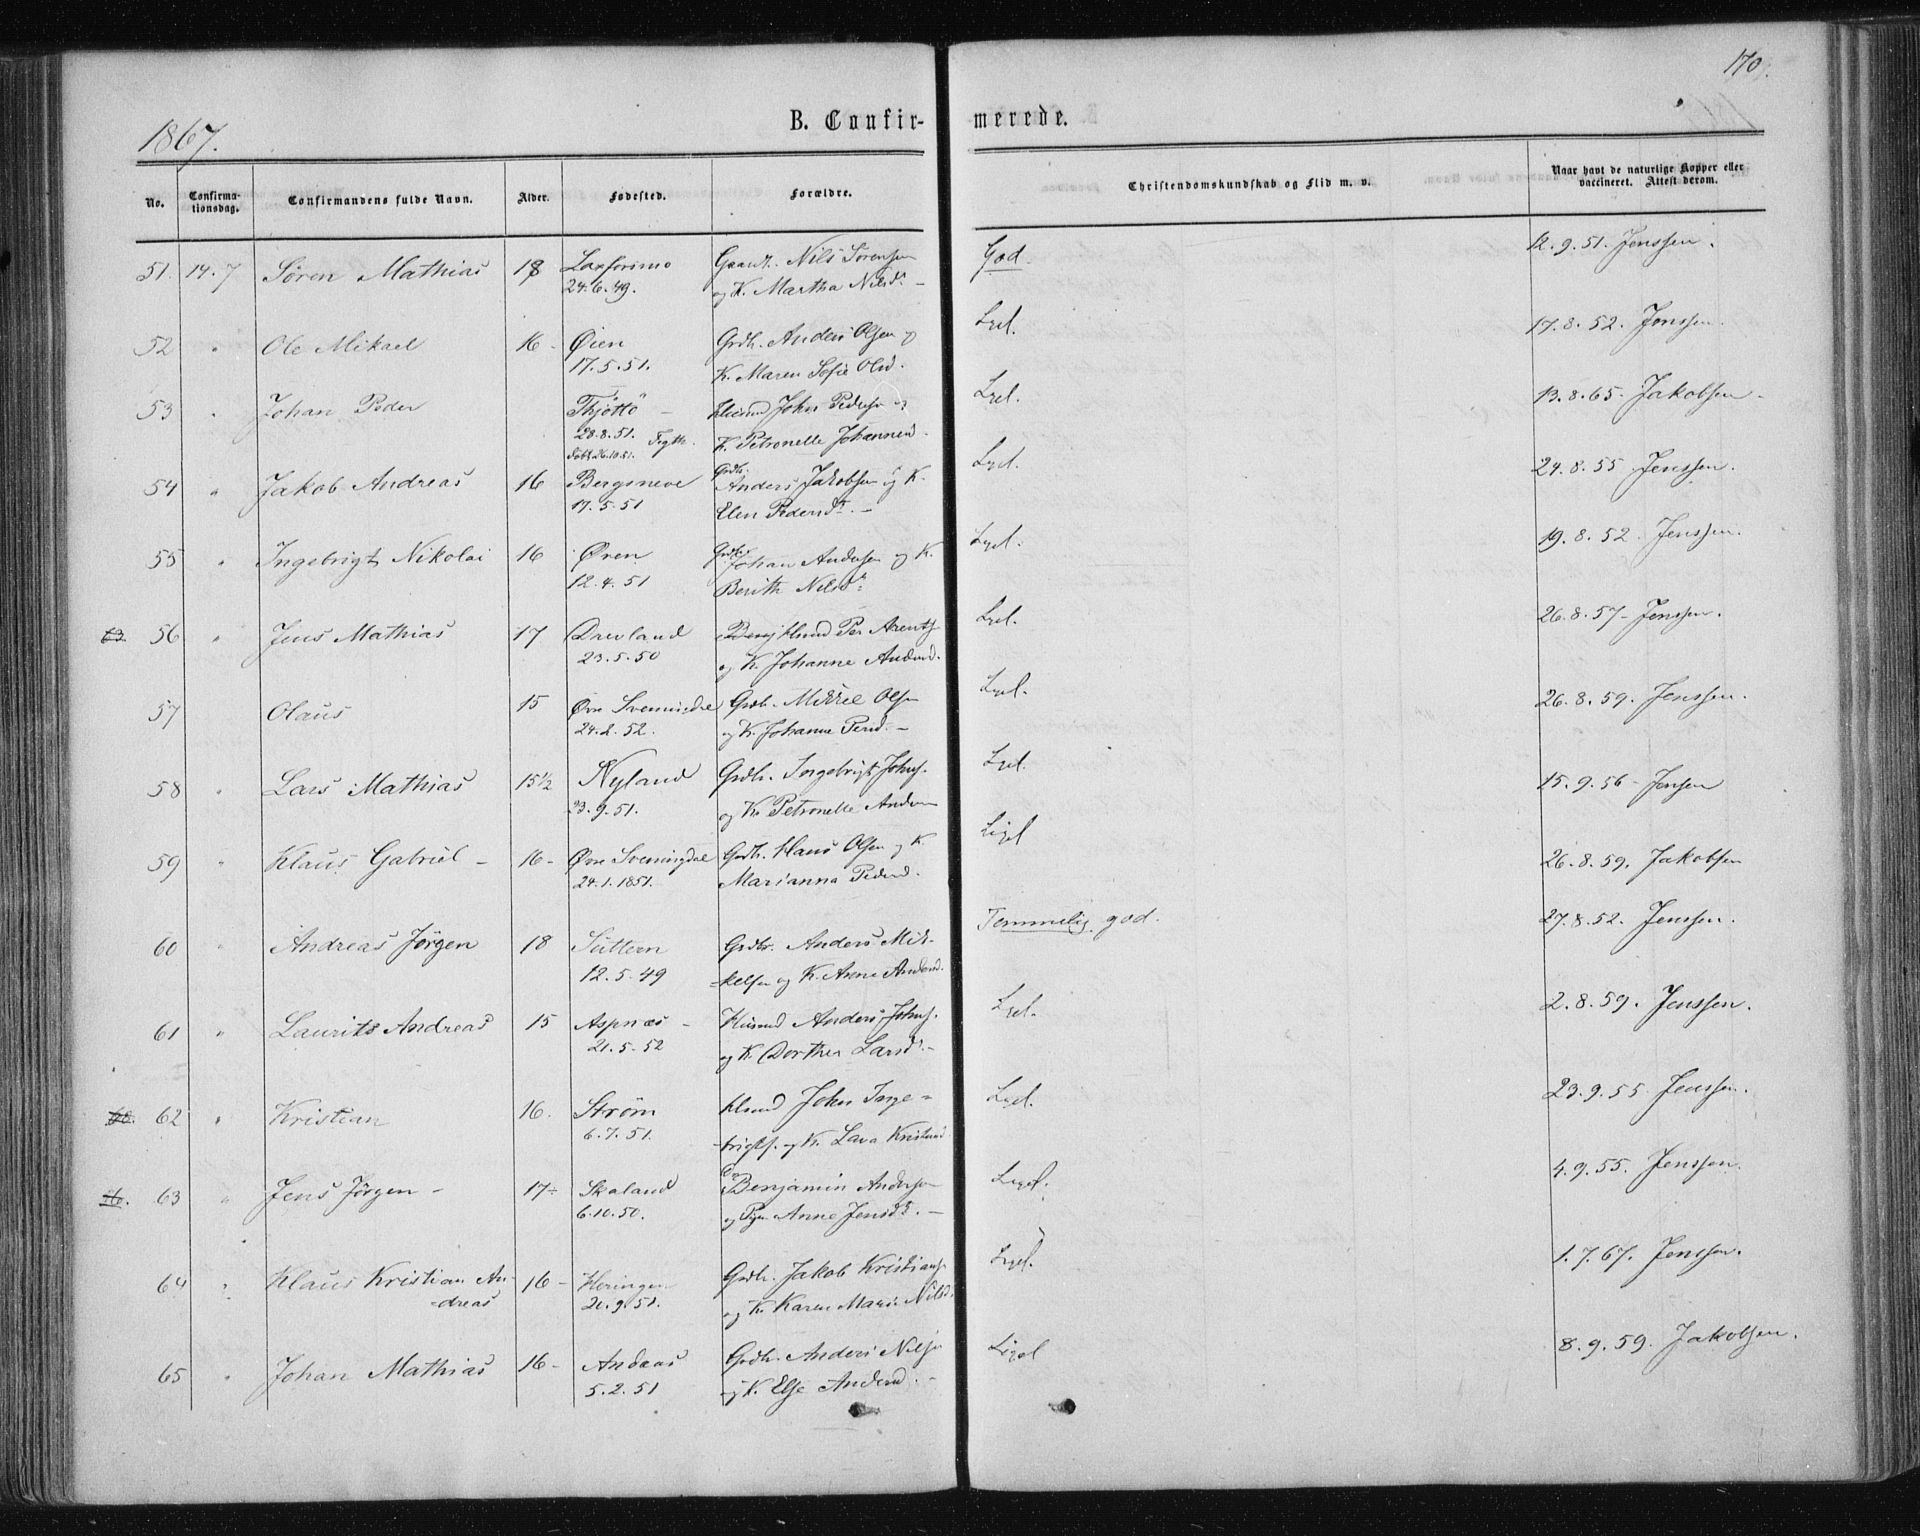 170.
1867.
B. Confirmerede.
No. Confirmationsdag. Confirmandens fulde Navn. Alder. Fødested. Forældre. Christendomskundskab og Flid m. v. Naar havt de naturlige Kopper eller vaccineret. Attest derom.
51. 14. 7 Søren Mathias 18 Laxforsmo Nils Sørensen God. 12. 9. 51. Jenssen.
24. 6. 49. og K. Martha Nilsd.
52 " Ole Mikael 16 - Øien Grdb. Anders Olsen og Lgel. 17. 8. 52. Jenssen.
17. 5. 51. K. Maren Sofie Olsd.
53 " Johan Peder Thjøttø - Husmd John Peders. og Lgel. 13. 8. 65. Jakobsen -
28. 8. 51. K. Petronelle Johannesd.
døbt 26.10.51.
54 " Jakob Andreas 16 Bergsneve Grdb. Anders Jakobsen og K. Lgel. 24. 8. 55 Jenssen.
17. 5. 51 Elen Pedersd. -
55 " Ingebrigt Nikolai 16 Øren Grdb. Johan Andersen og K. Lgel. 19. 8. 52. Jenssen.
12. 4. 51 Berith Nilsd.
63. 56 " Jens Mathias 17 Drevland Husmd Per Arents. Lgel. 26. 8. 57 - Jenssen.
23. 5. 50 og K. Johanne Andersd.
57 " Olaus 15 Øvre Svenningdal Grdb. Mikkel Olsen Lgel. 26. 8. 59. Jenssen.
24. 2. 52. og K. Johanne Persd. -
58 " Lars Mathias 15½ Nyland Grdb. Ingebrigt Johns. Lgel. 15. 9. 56 - Jensen
23. 9. 51. og K. Petronelle Anders
59 " Klaus Gabriel - 16 - Øvre Svenningdal Grdb. Hans Olsen og K. Ligel 26. 8. 59. Jakobsen
24. 1. 1851. Marianna Pedersd.
60 " Andreas Jørgen 18 Suttern Grdbr. Anders Mik- Temmelig god. 27. 8. 52. Jenssen.
12. 5. 49 kelsen og K. Anne Andersd.
61 " Laurits Andreas 15 Aspnæs - Husmd Anders Johns. Lgel. 2. 8. 59. Jenssen.
21. 5. 52 og K. Dorthea Larsd. -
62 " Kristian 16. Strøm Husmd John Inge- Lgel. 23. 9. 55 Jenssen.
6. 7. 51. brigts. og K. Lava Kristensd.
56. 63 " Jens Jørgen - 17 - Skaland Benjamin Andersen Ligel. 4. 9. 55. Jenssen.
6. 10. 50. og Pigen Anne Jensd. -
64 " Klaus Kristian An- 16 - Heringen Grdb. Jakob Kristians. Lgel. 1. 7. 67. Jenssen.
dreas 20. 9. 51. og K. Karen Marie Nilsd.
65 " Johan Mathias 16 - Andaas Grdb. Anders Nilsen Ligel 8. 9. 59. Jakobsen.
5. 2. 51 og K. Else Andersd. -